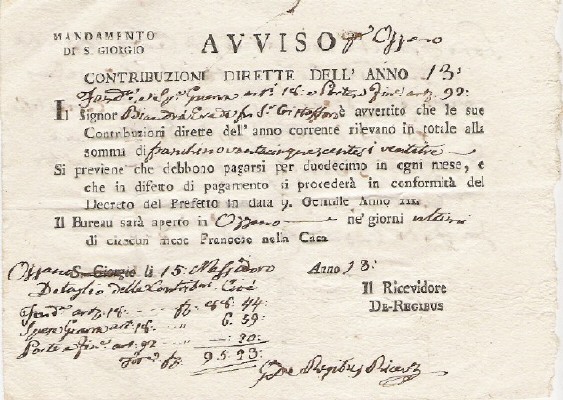 MANDAMENTO
DI S. GIORGIO
AVVISO pr Ozzano
CONTRIBUZIONI DIRETTE DELL' ANNO 13:
Guerra art. 18. e Porte e Fin. art. 92:
Il Signor è avvertito che le sue
Contribuzioni dirette del' anno corrente rilevano in totale alla
somma di franchi novantacinque centesimi ventitre
Si previene che debbono pagarsi per duodecimo in ogni mese, e
che in difetto di pagamento si procederà in conformità del
Decreto del Prefetto in data 9. Gennile Anno III.
Il Bureau sarà aperto in Ozzano ne' giorni ultimi
di ciascun mese Francese nella Casa
Ozzano S. Giorgio li 15. Messidoro Anno 13:
Dettaglio delle Contribuz. Cioè
Fond. art. 18. 88. 44:
Spese Guerra art. 18. 6. 59:
Porte e Fin. art. 92 20:
95. 23:
Il Ricevidore
DE-REGIBUS
De Regibus Ricev.